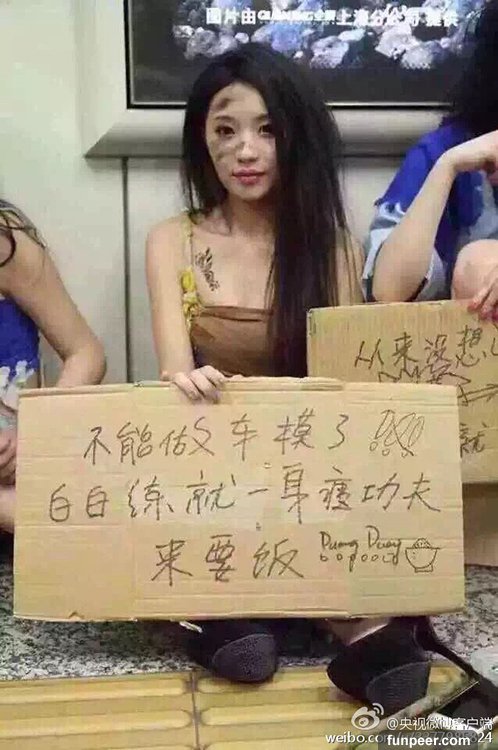 图片由 上海分公司 提供
不能做车模了
白白练就一身功夫
来要饭 Duang Duang
从来没想
就
@央视微博客户端
weibo.com/
funpeer.com